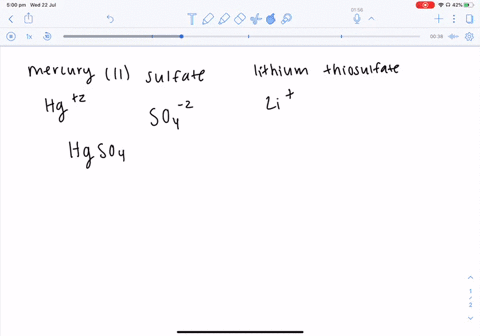 5:00 pm Wed 22 Jul
42%
01:56
1x
00:38
mercury (II) sulfate lithium thiosulfate
Hg+2 SO4-2 Li+
HgSO4
1
2